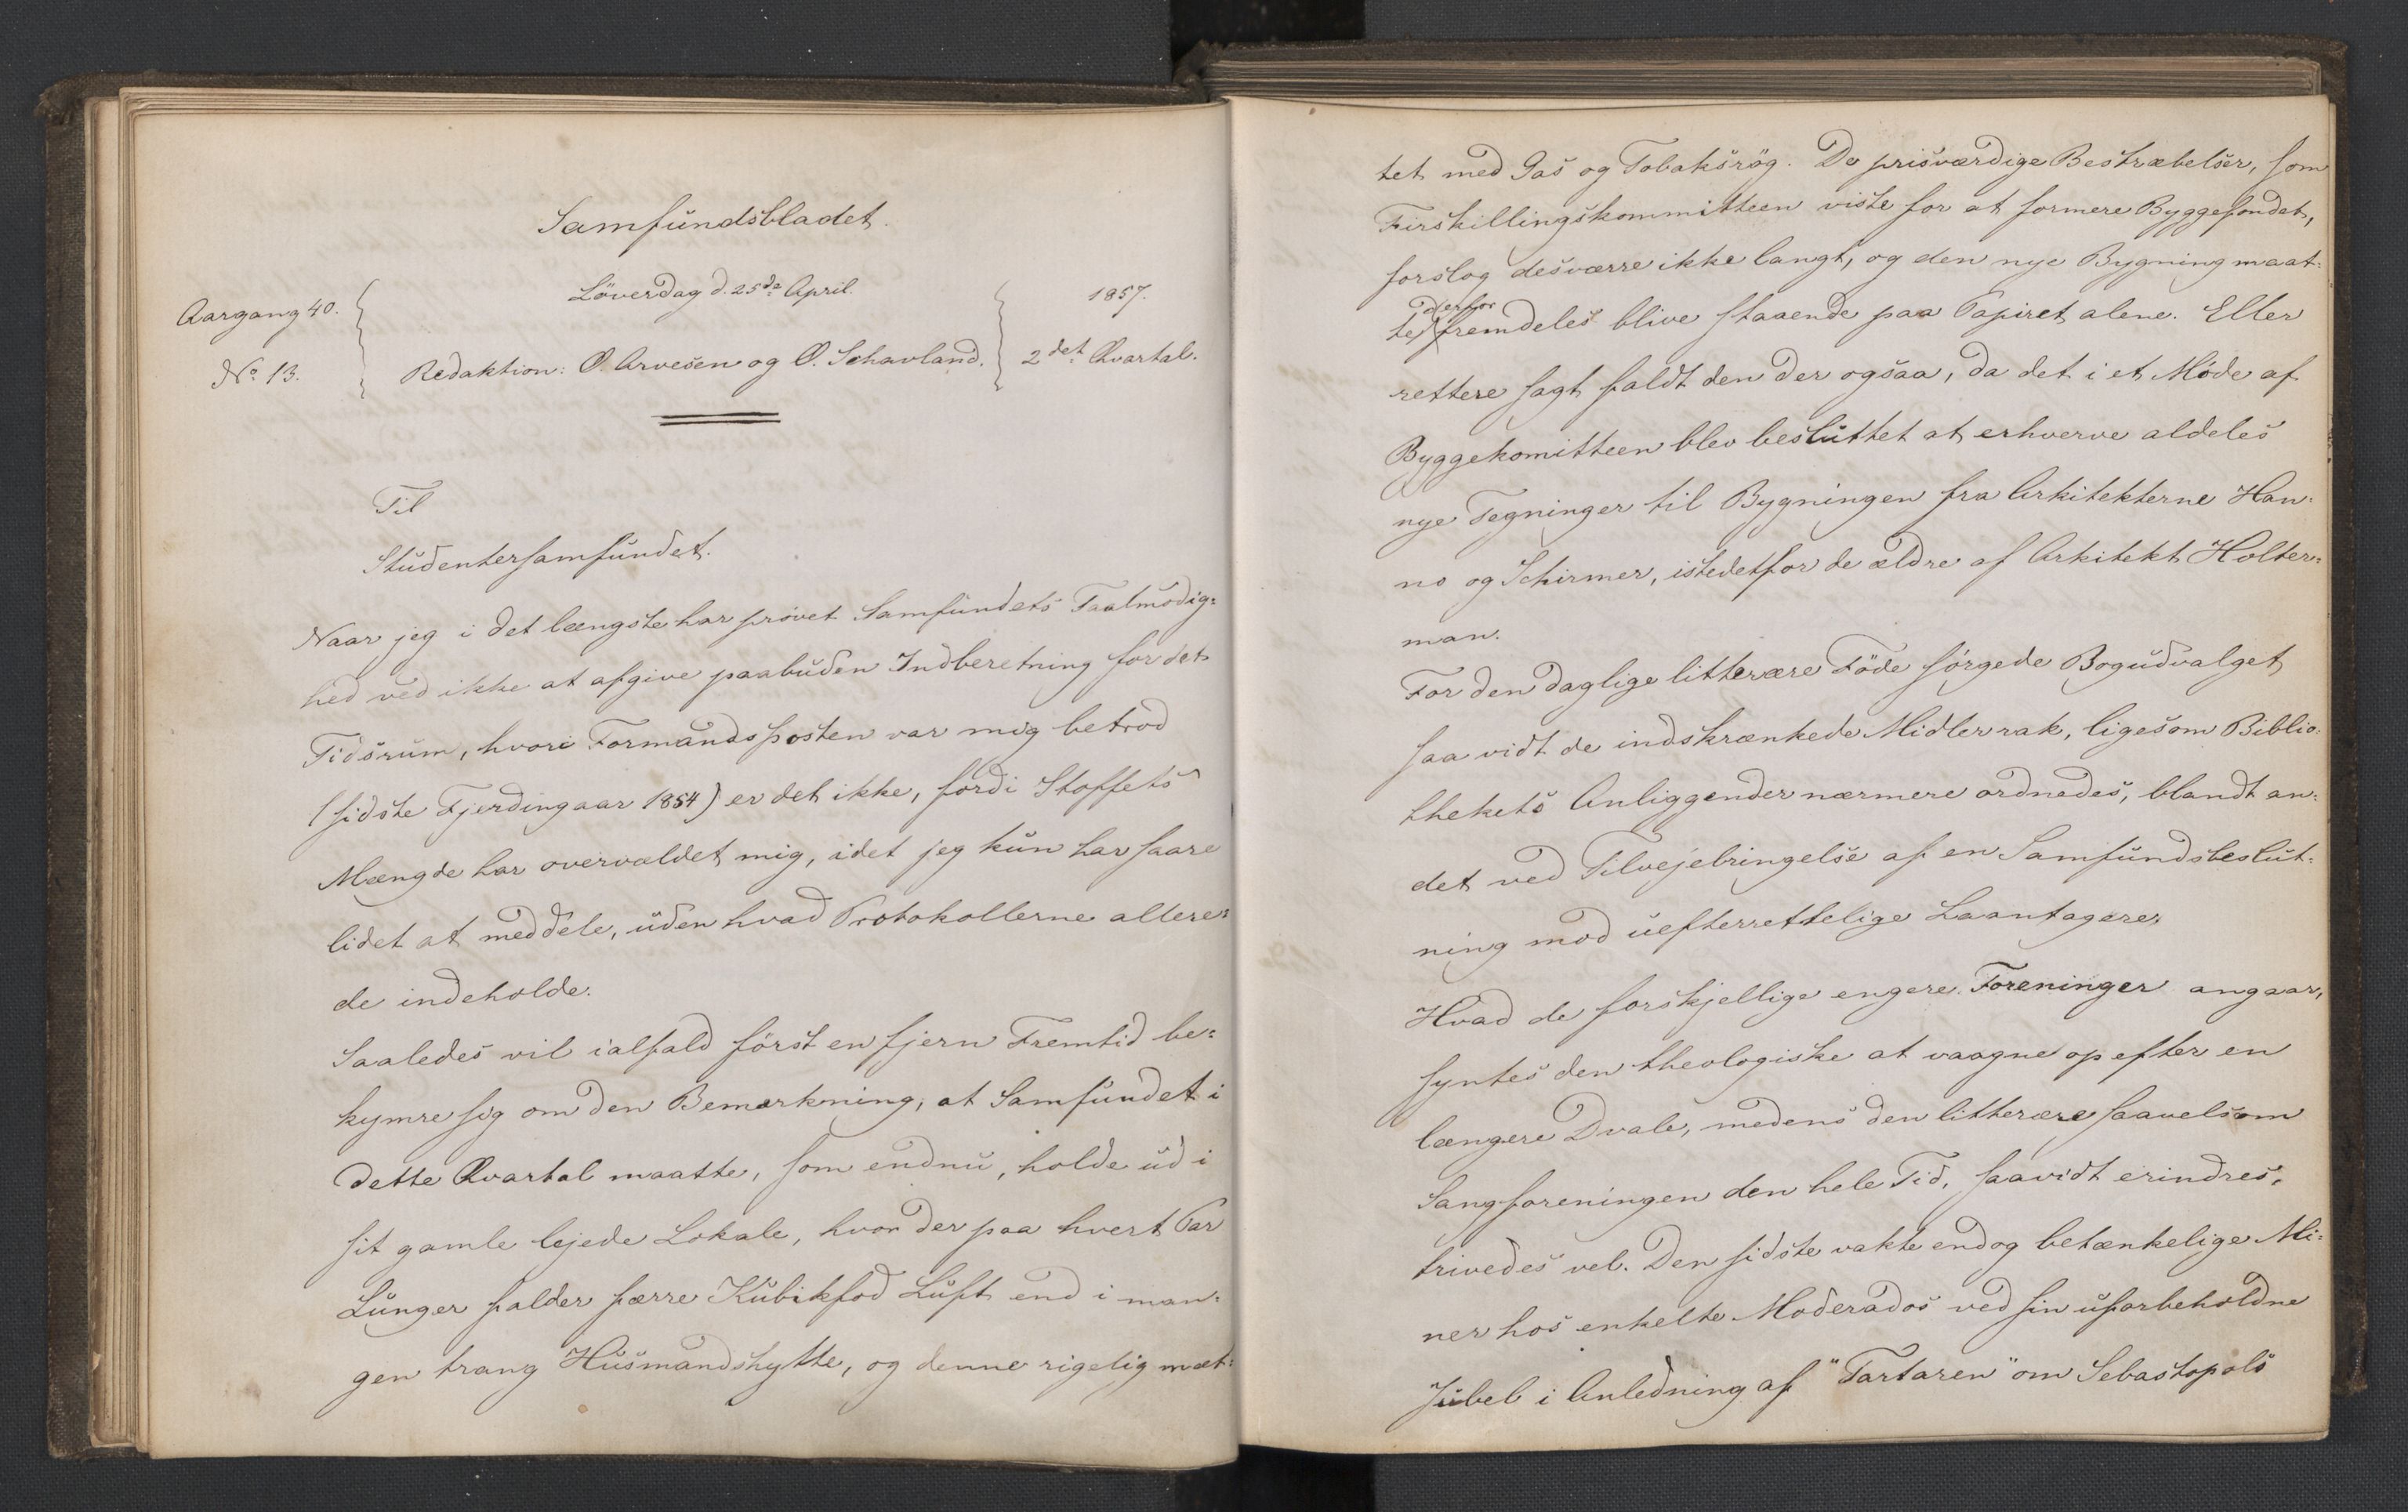 Samfundsbladet.
Löverdag d. 25de April.
Aargang 40.
1857.
No 13.
Redaktion: O. Arvesen og O. Schavland.
2det Qvartal.
Til
Studentersamfundet.
Naar jeg i det længste har prøvet Samfundets Taalmodig=
hed ved ikke at afgive paabuden Indberetning for det
Tidsrum, hvori Formandsposten var mig betrod
(sidste Fjerdingaar 1854) er det ikke, fordi Stoffets
Mængde har overvældet mig, idet jeg kun har saare
lidet at meddele, uden hvad Protokollerne allere=
de indeholde.
Saaledes vil ialfald först en fjern Fremtid be=
kymre sig om den Bemærkning, at Samfundet i
dette Qvartal maatte, som endnu, holde ud i
sit gamle lejede Lokale, hvor der paa hvert Par
Lunger falder færre Kubikfod Luft end i man=
gen trang Husmandshytte, og denne rigelig mæt=
tet med Gas og Tobaksrög. De prisværdige Bestræbelser, som
Firskillingskommitteen viste for at formere Byggefondet,
forslog desværre ikke langt, og den nye Bygning maat=
te derfor fremdeles blive staaende paa Papiret alene. Eller
rettere sagt faldt den der ogsaa, da det i et Møde af
Byggekomitteen blev besluttet at erhverve aldeles
nye Tegninger til Bygningen fra Arkitekterne Han=
no og Schirmer, istedetfor de ældre af Arkitekt Holter=
man.
For den daglige litterære Föde sørgede Bogudvalget
saa vidt de indskrænkede Midler rak, ligesom Biblio=
thekets Anliggender nærmere ordnedes, blandt an=
det ved Tilvejebringelse af en Samfundsbeslut=
ning mod uefterrettelige Laantagere.
Hvad de forskjellige engere Foreninger angaar,
syntes den theologiske at vaagne op efter en
længere Dvale, medens den litterære saavelsom
Sangforeningen den hele Tid, saavidt erindres,
trivedes vel. Den sidste vakte endog betænkelige Mi=
ner hos enkelte Moderados ved sin uforbeholdne
Jubel i Anledning af "Tartaren" om Sebastopols